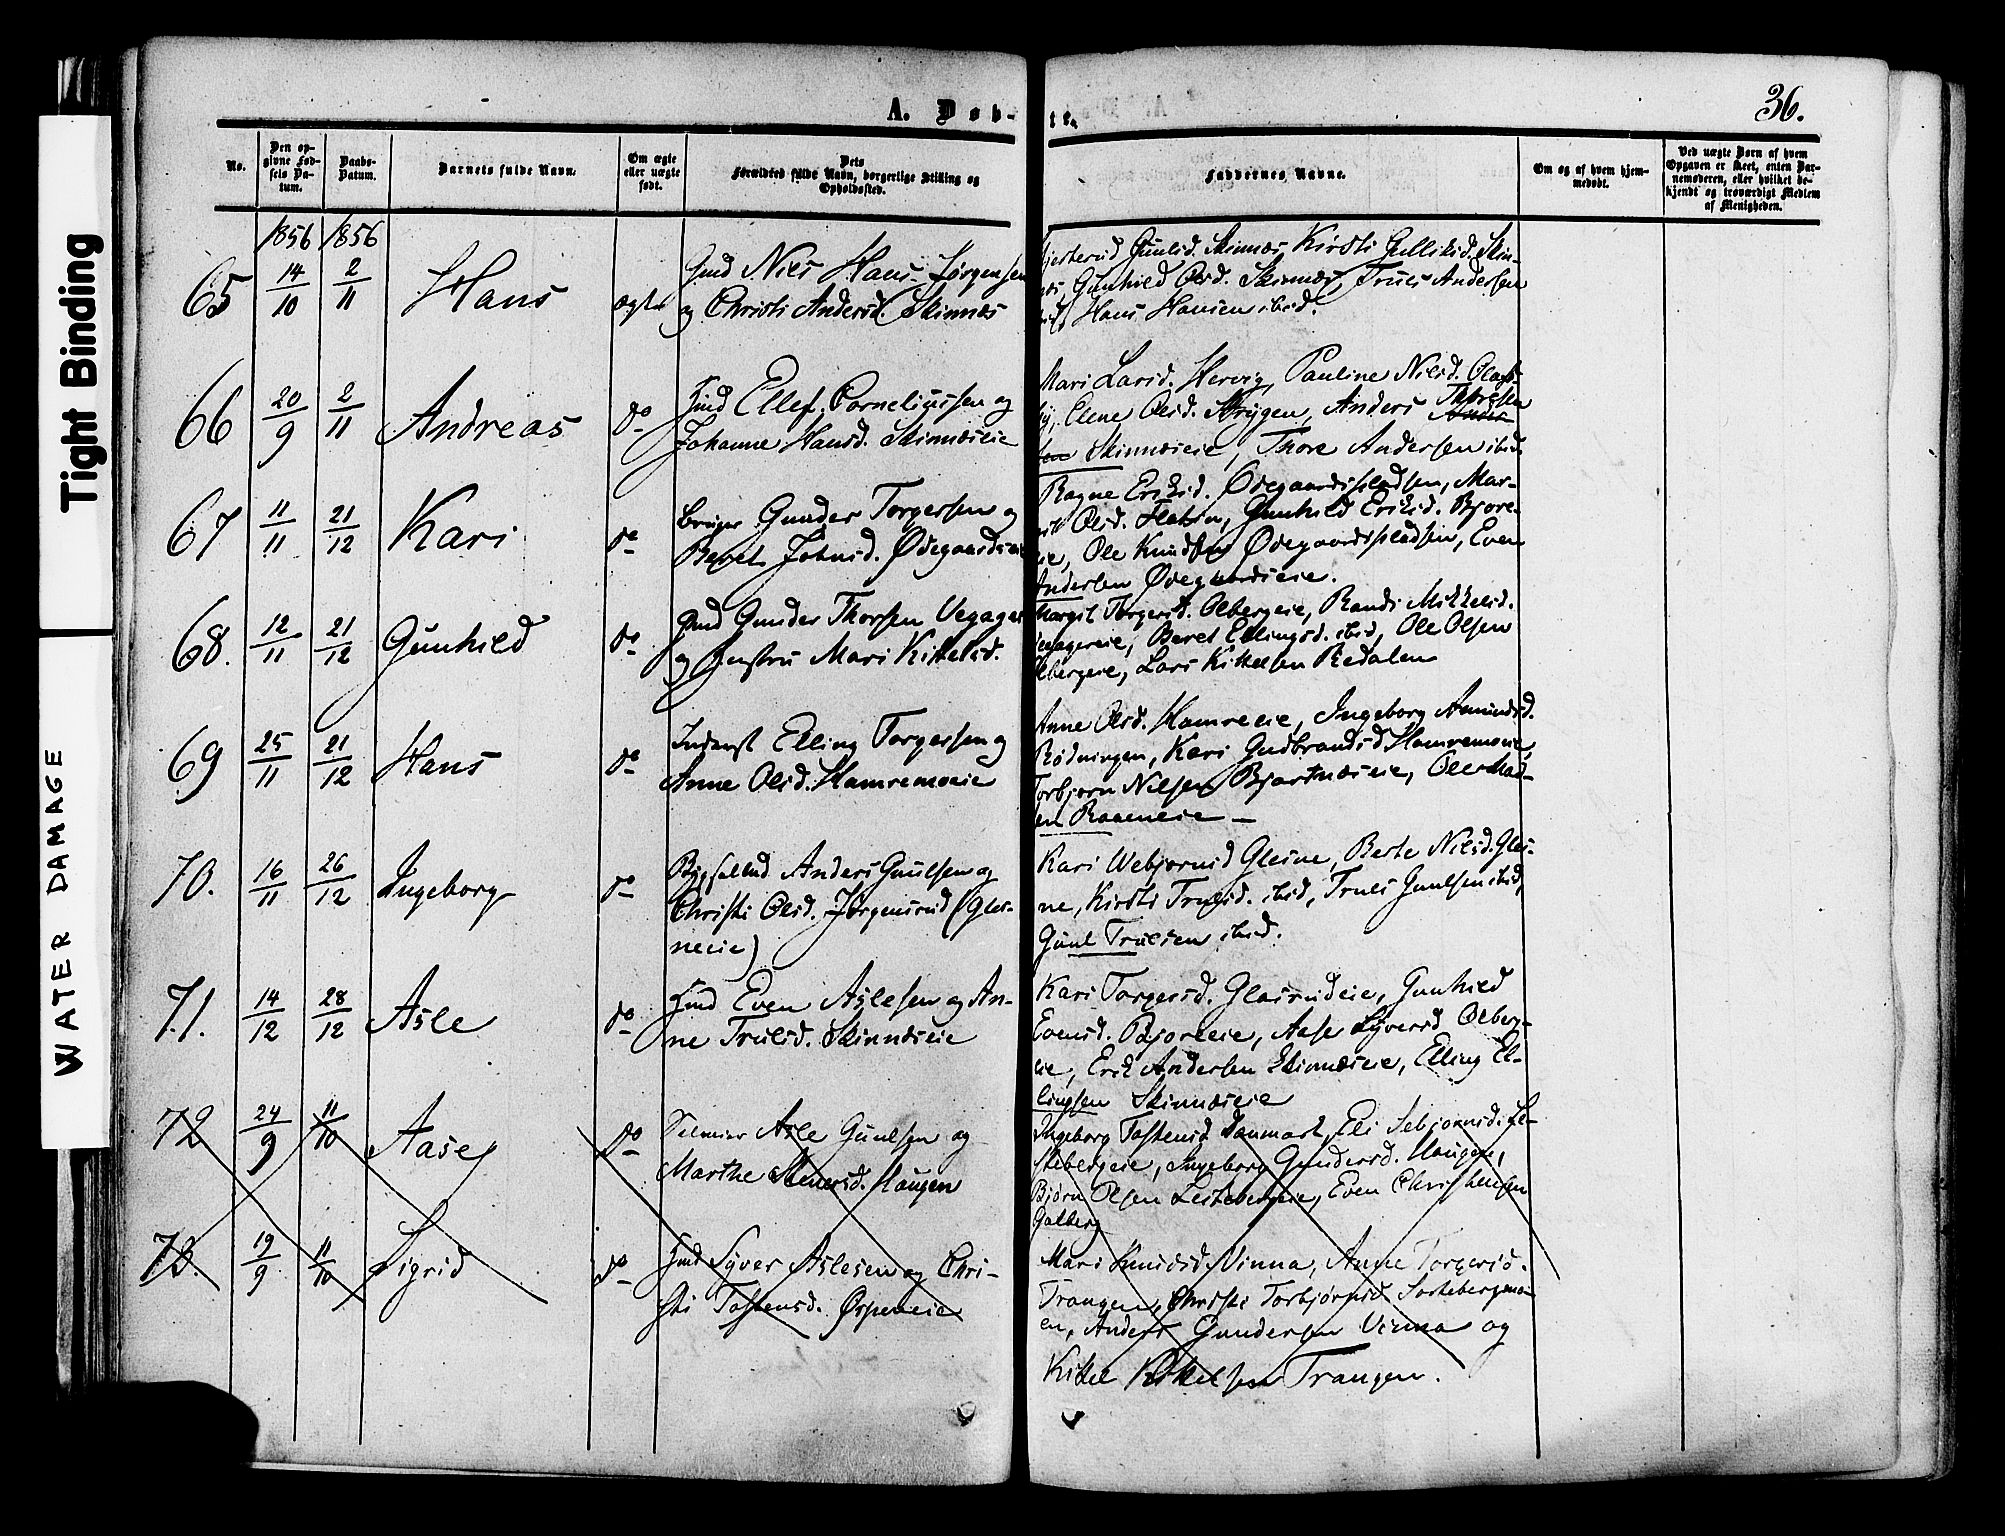 Tight Binding
WATER DAMAGE
36.
A. Døb-
te.
No.
Den op-
givne Fød-
sels Da-
tum.
Daabs-
Datum.
Barnets fulde Navn.
Om ægte
eller uægte
født.
Dets
Forældres fulde Navn, borgerlige Stilling og
Opholdssted.
Faddernes Navne.
Om og af hvem hjem-
medøbt.
Ved uægte Børn af hvem
Opgaven er skeet, enten Bar-
nemoderen, eller hvilket be-
kjendt og troværdigt Medlem
af Menigheden.
1856 1856
65 14/10 2/11 Hans ægte
Gmd Nils Hans Jørgensen
og Christi Andersd. Skinnes
Gunlsd. Skinnes, Kirsti Gulliksd. Skin-
nes, Gunhild Olsd. Skinnes, Truls Andersen
ibid, Hans Hansen ibid.
66 20/9 2/11 Andreas do
Hmd Ellef Corneliussen og
Johanne Hansd. Skinneseie
Mari Larsd. Hervig, Pauline Nilsd. Olafs-
by, Elene Olsd. Strygen, Anders Thoresen
Skinneseie, Thore Andersen ibid.
67 11/11 21/12 Kari do
Bruger Gunder Torgersen og
Beret Johnsd. Ødegaardseie
Ragne Eriksd. Ødegaardspladsen, Mar-
git Olsd. Flaten, Gunhild Eriksd. Bjøre-
eie, Ole Knudsen Ødegaardspladsen, Even
Andersen Ødegaardseie.
68. 12/11 21/12 Gunhild do
Gmd Gunder Thorsen Vegager
og Hustru Mari Kittelsd.
Margit Torgersd. Olbergeie, Randi Mikkelsd.
Vegagereie, Beret Ellingsd. ibid, Ole Olsen
Olbergeie, Lars Kittelsen Redalen
69 25/11 21/12 Hans do
Inderst Elling Torgersen og
Anne Olsd. Hamremoeie
Anne Olsd. Hamreeie, Ingeborg Amundsd.
Rødningen, Kari Gudbrandsd Hamremoeie,
Torbjørn Nilsen Bjertneseie, Ole Mad-
sen Raaeneie —
70. 16/11 26/12 Ingeborg do
Bygselmd Anders Gunlsen og
Christi Olsd. Jørgensrud (Gles-
neeie)
Kari Webjørnsd Glesne, Berte Nilsd. Gles-
ne, Kirsti Trulsd. ibid, Truls Gunlsen ibid,
Gunl Trulsen ibid.
71. 14/12 28/12 Asle do
Hmd Even Aslesen og An-
ne Trulsd. Skinneseie
Kari Torgersd. Glasrudeie, Gunhild
Evensd. Bjøreeie, Aase Syversd Olberg-
eie, Erik Andersen Skinneseie, Elling El-
lingsen Skinneseie
72 24/9 11/10 Aase do
Selveier Asle Gunlsen og
Marthe Stenersd. Haugen
Ingeborg Tostensd Danmark, Eli Sebjørnsd. Le-
stebergeie, Ingeborg Gundersd. Haugen,
Bjørn Olsen Lestebergeie, Even Christensen
Golberg
73. 19/9 11/10 Sigrid do
Hmd Syver Aslesen og Chri-
sti Tostensd. Ørpeneie
Mari Knudsd. Vinna, Anne Torgersd.
Trangen, Christi Torbjørnsd
en, Anders Gundersen Vinna og
Kittel Kittelsen Trangen.